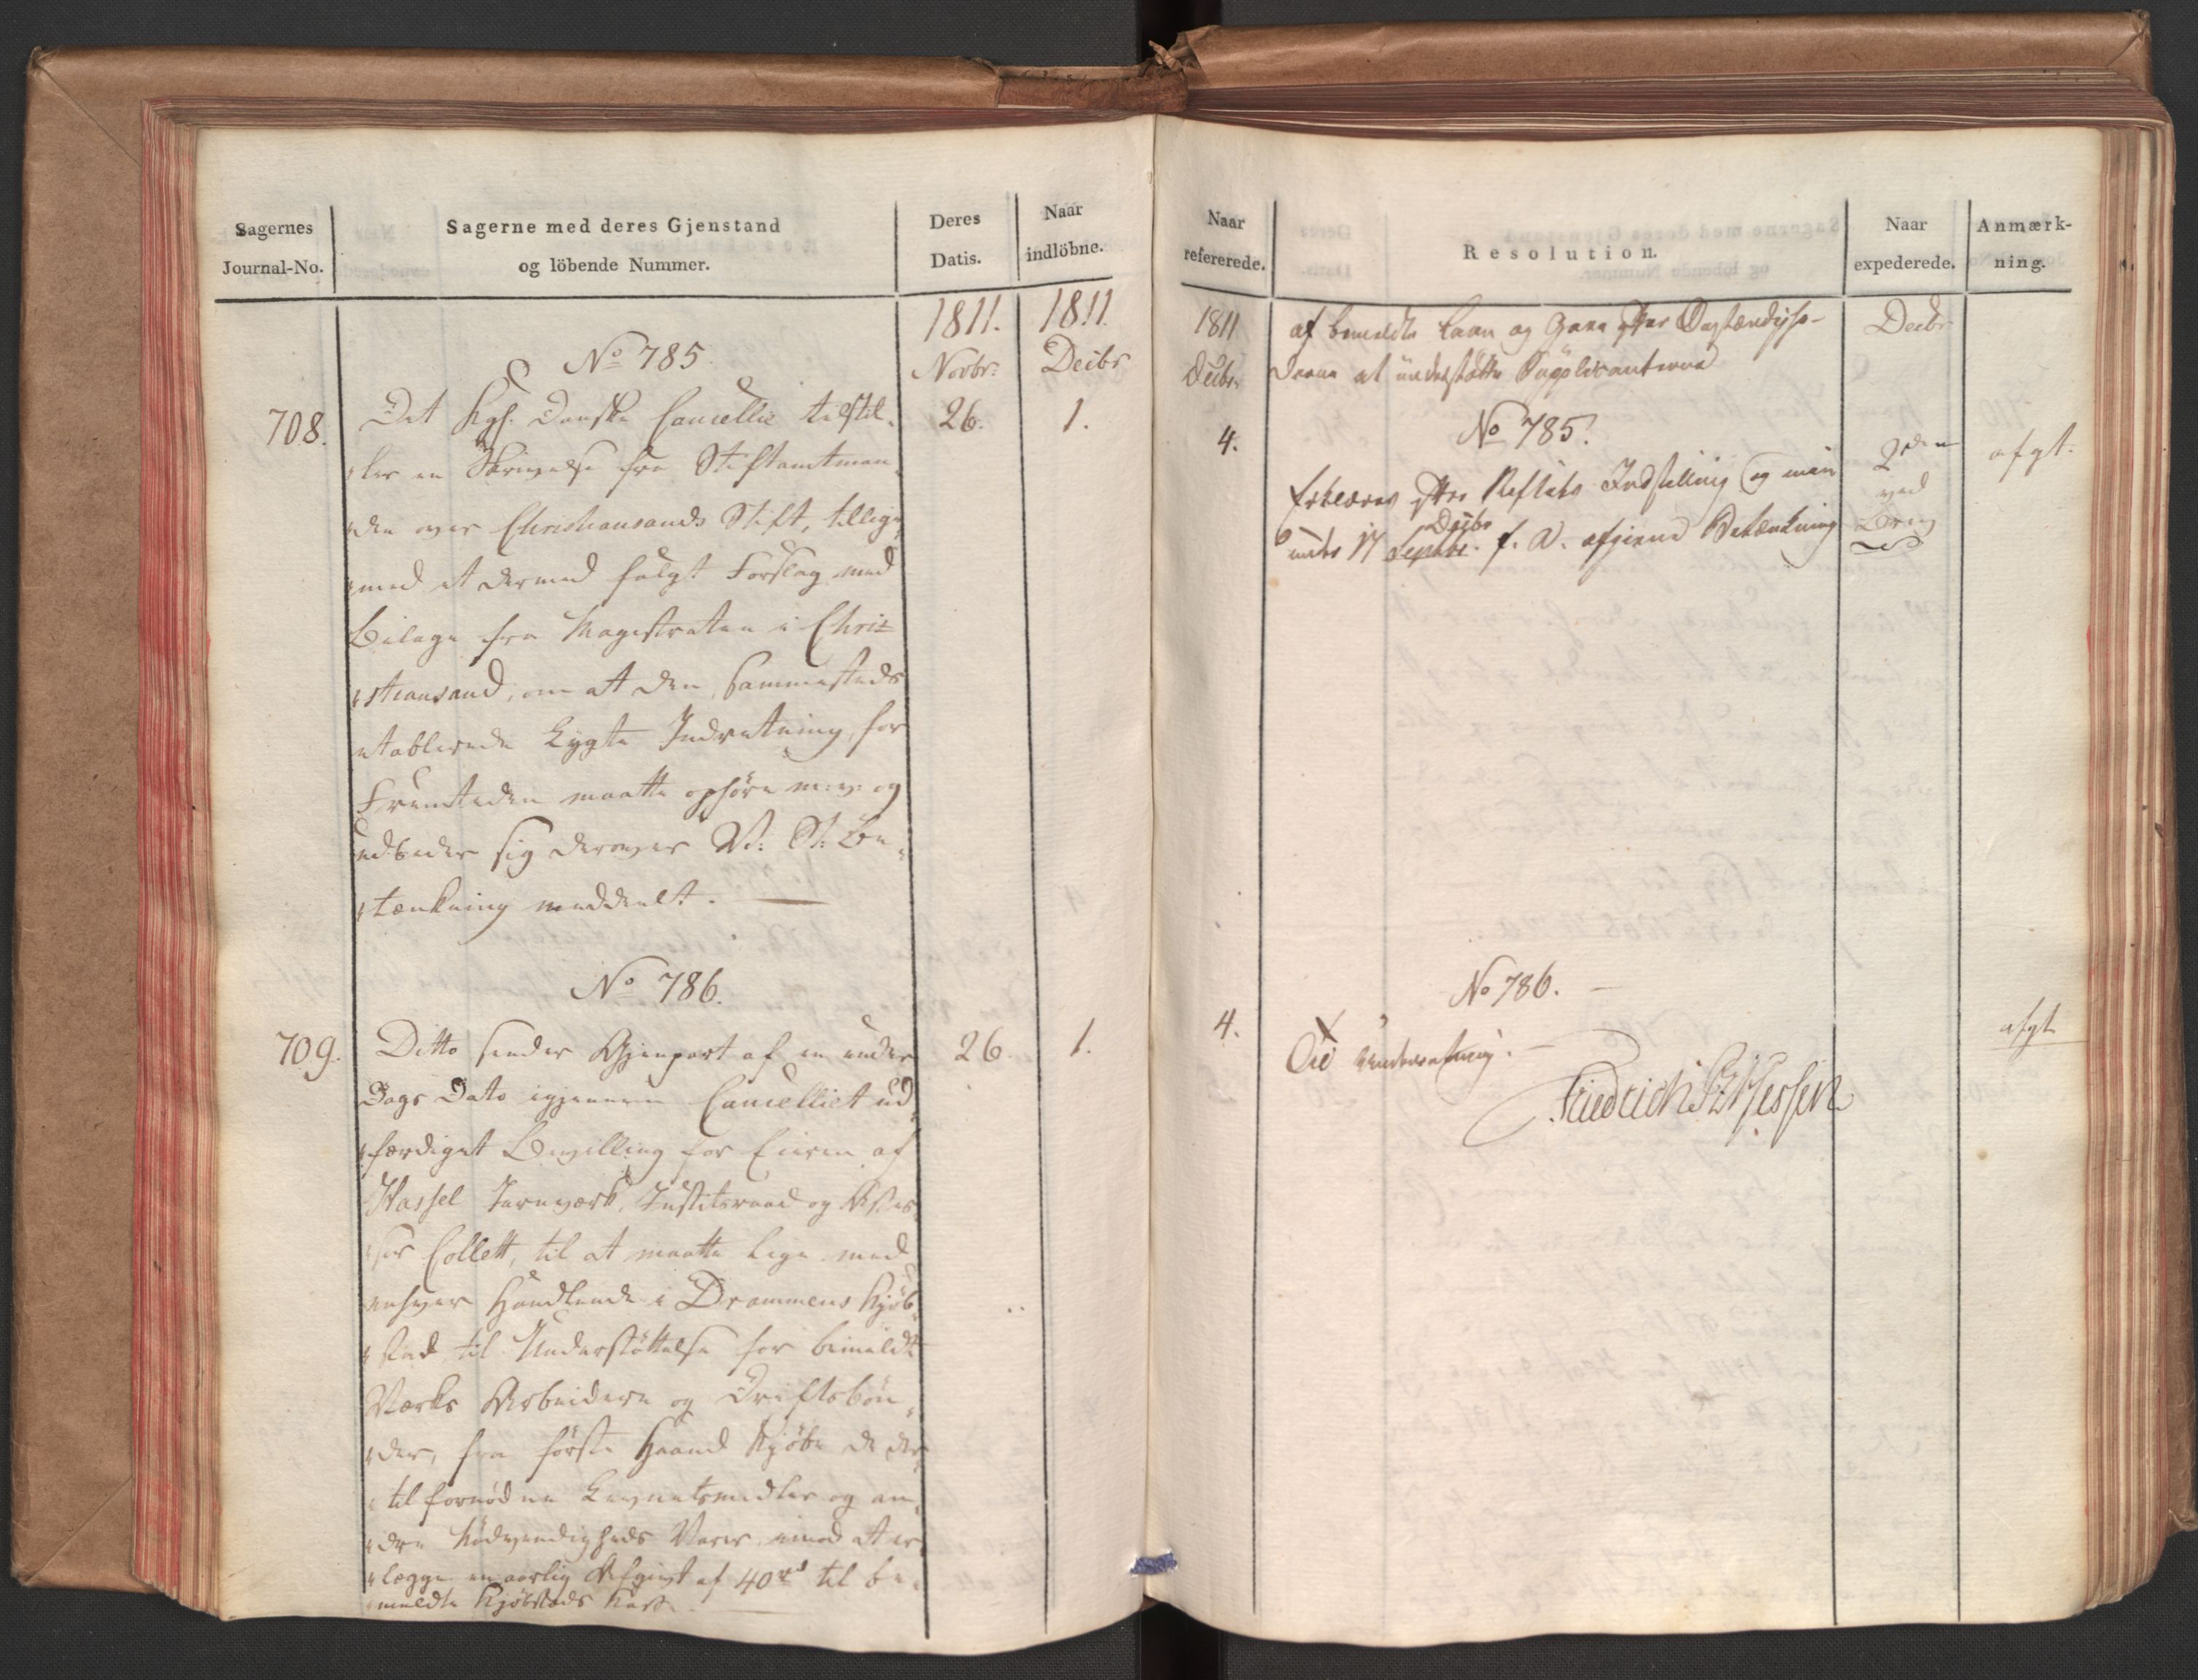 Sagernes
Journal-No.
Sagerne med deres Gjenstand
og löbende Nummer.
Deres
Datis.
Naar
indlöbne.
1811.
Novbr:
1811.
Decbr
No 785.
708.
Det Kgl. Danske Cancellie tilstil-
ler en Skrivelse fra Stiftamtman-
den over Christiansands Stift, tillige
med et dermed fulgt Forslag med
Bilage fra Magistraten i Chri-
stiansand, om at den sammesteds
etablerede Lygte Indretning, for
Fremtiden maatte ophøre m: v: og
udbeder sig derover V: St: Be-
tænkning meddeelt.
26.
1.
No 786.
709.
Ditto sender Gjenpart af en under
Dags Dato igjennem Cancelliet ud-
færdiget Bevilling for Eieren af
Hassel Jernværk, Justitsraad og Asses-
sor Collett, til at maatte lige med
enhver Handlende i Drammens Kjøb-
stad til Understøttelse for bemeldte
Værks Arbeidere og Driftsbøn-
der, fra første Haand kjøbe de der-
til fornødne Levnetsmidler og an-
dre Nødvendigheds Varer, imod at er-
lægge en aarlig Afgivt af 40 rd til be-
meldte Kjøbstads Kasse.
26.
1.
Naar
refererede.
Resolution.
Naar
expederede.
Anmærk-
ning.
1811
Decbr.
af bemeldte Laan og
at understøtte Supplicanterne
Decbr
No 785.
4.
Erklæres efter Indstilling og min
under 17 Septbr. Decbr f. A. afgivne Betænkning
2den
ved
Brev
afgt.
No 786.
4.
Til Underretning.
afgt
Friedrich Pz Hessen